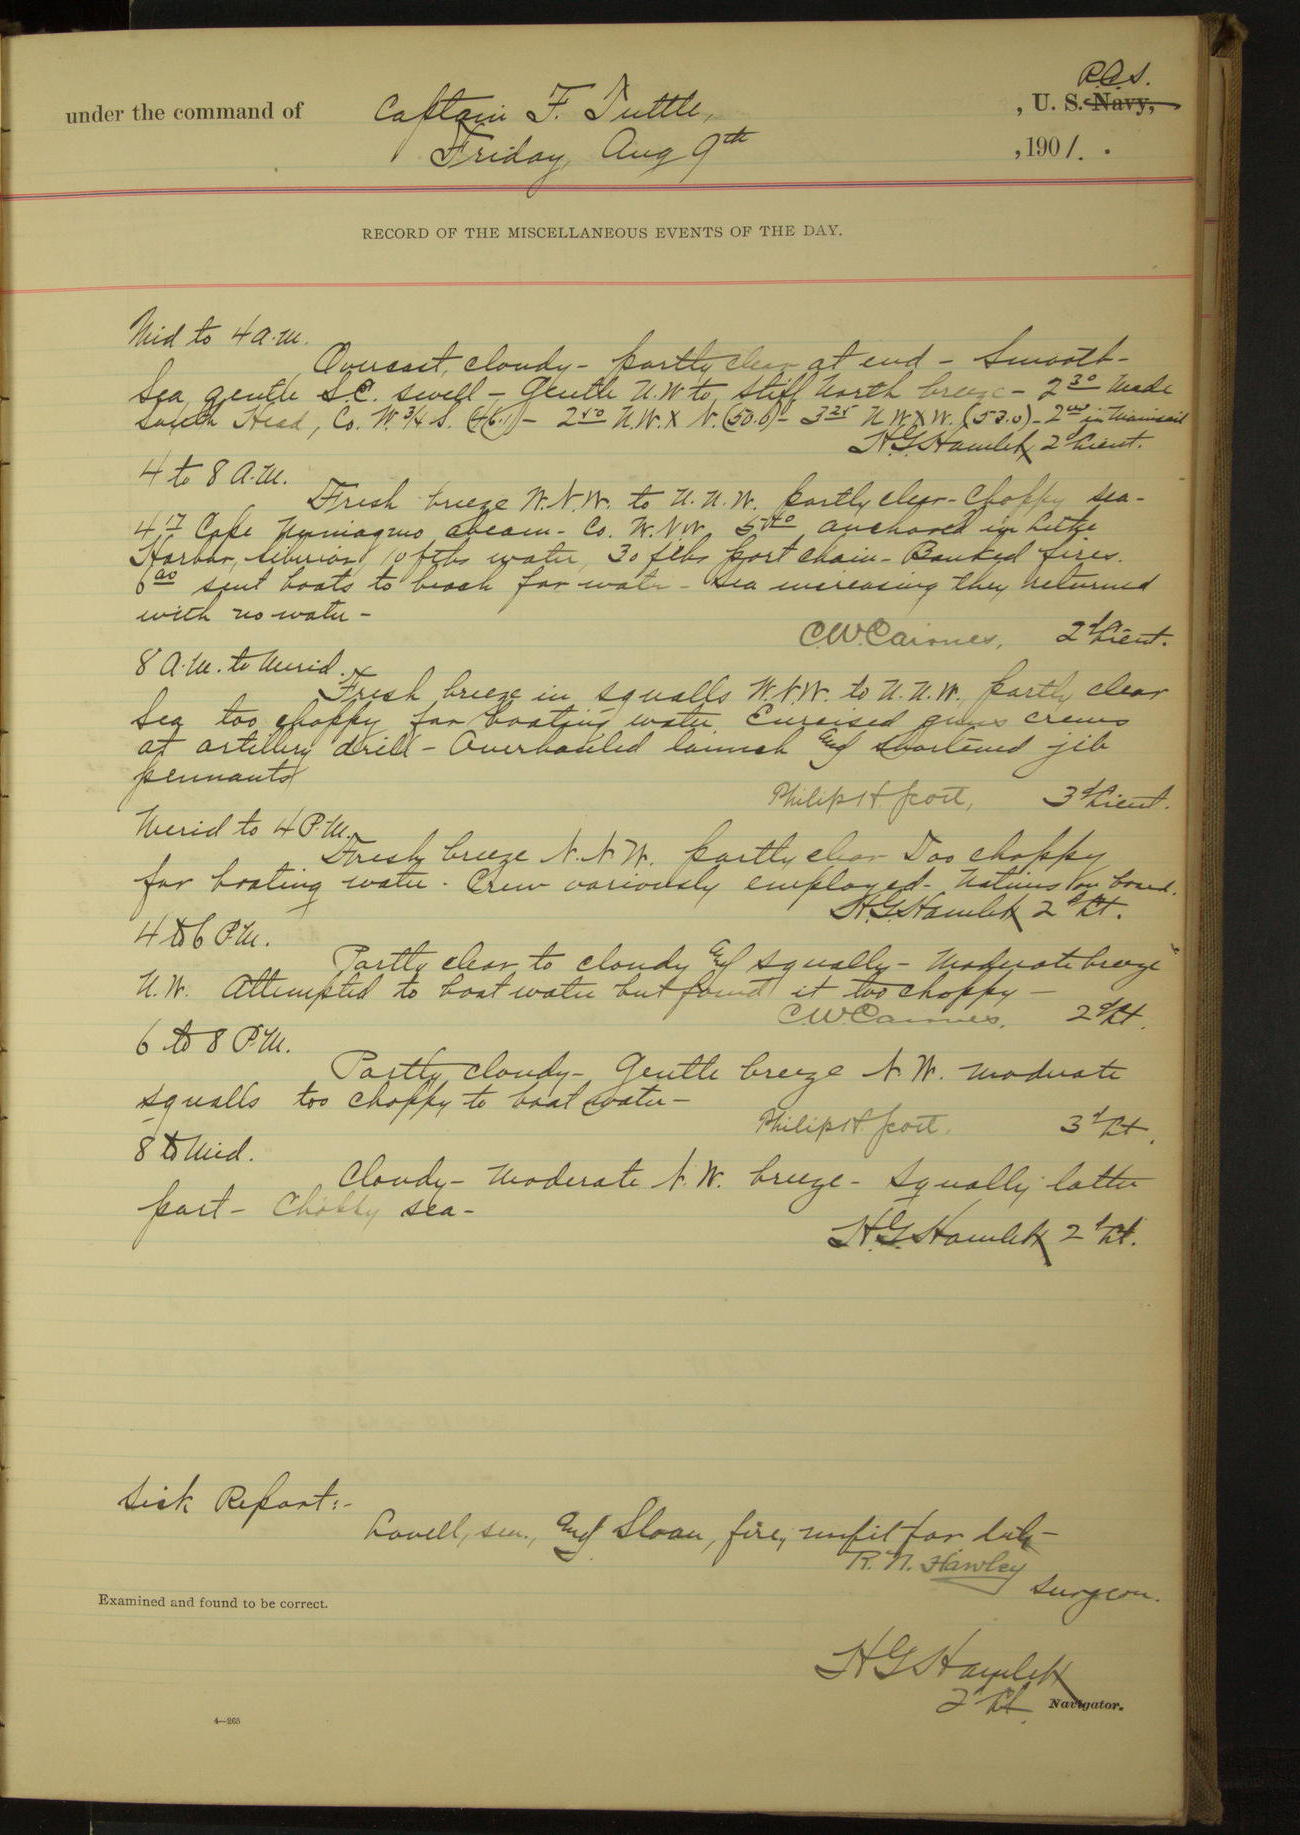 R.C.S.
under the command of Captain F. Tuttle, , U. S. Navy,
Friday, Aug 9th , 1901.
RECORD OF THE MISCELLANEOUS EVENTS OF THE DAY.
Mid to 4 a.m.
Overcast, cloudy - partly clear at end - Smooth -
Sea, gentle S.E. swell - Gentle N.W. to stiff North breeze - 2 30 Made
South Head, Co. W. 3/4 S. (46.1) - 2 50 N.W. X N. (50.6) - 3 25 N.W. X W. (53.0) - in Mainsail
H.G. Hamlet 2d Lieut.
4 to 8 A.M.
Fresh breeze W.N.W. to N.N.W. partly clear - Choppy sea -
4 17 Cape abeam - Co. W.N.W. 5 40 anchored in Little
Harbor, Siberia, 10 fths water, 30 fths port chain - Banked fires.
6 00 sent boats to beach for water - Sea increasing they returned
with no water -
C.W. Cairnes, 2d Lieut.
8 A.M. to Merid.
Fresh breeze in squalls W.N.W. to N.N.W., partly clear
Sea too choppy for boating water. Exercised guns crews
at artillery drill - Overhauled launch and shortened jib
pennants
Philip H Scott, 3d Lieut.
Merid to 4 P.M.
Fresh breeze N.N.W. partly clear Too choppy
for boating water. Crew variously employed - Natives on board.
H.G. Hamlet 2d Lt.
4 to 6 P.M.
Partly clear to cloudy and squally - Moderate breeze
N.W. Attempted to boat water but found it too choppy -
C.W. Cairnes. 2d Lt.
6 to 8 P.M.
Partly cloudy - Gentle breeze N.W. moderate
squalls too choppy to boat water -
Philip H. Scott. 3d Lt.
8 to Mid.
Cloudy - Moderate N.W. breeze - Squally latter
part - Choppy sea -
H.G. Hamlet 2d Lt.
Sick Report:-
Lovell, sea., and Sloan, fire, unfit for duty -
R. N. Hawley
Surgeon.
Examined and found to be correct.
H G Hamlet
2d Lt. Navigator.
4—265